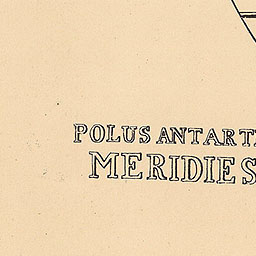 POLUS ANTART
MERIDIES